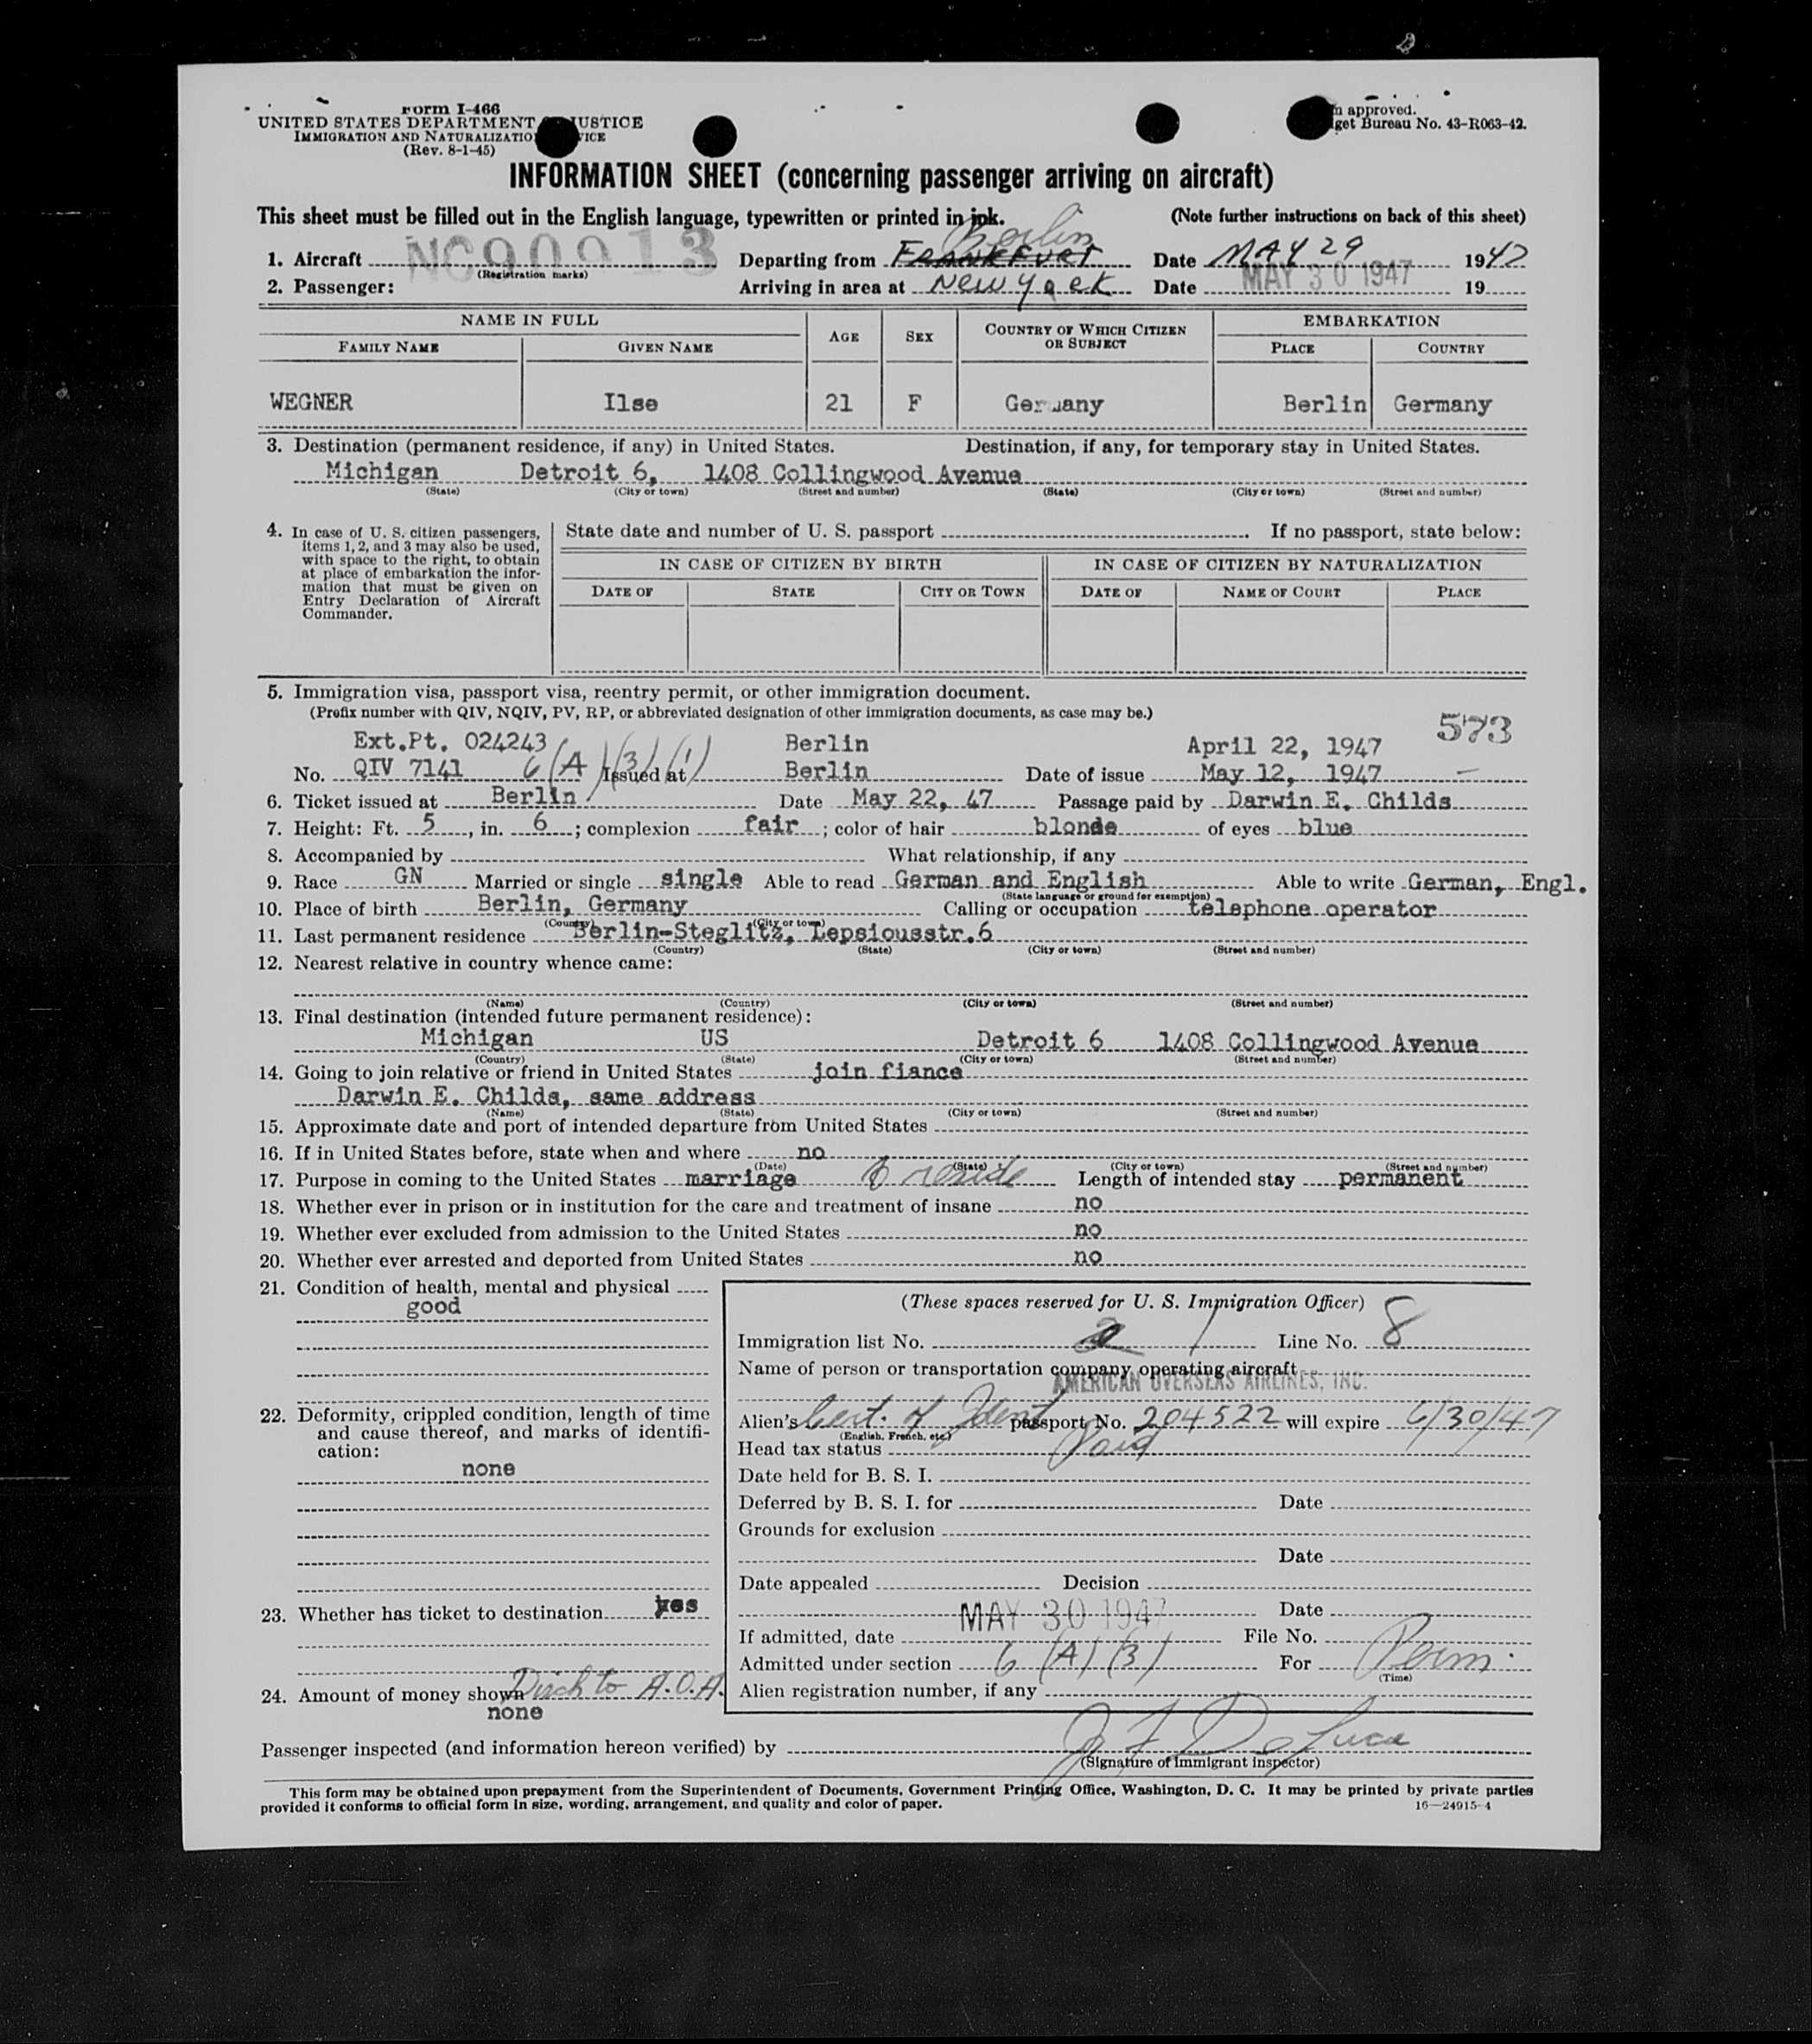 Form I-466
UNITED STATES DEPARTMENT JUSTICE
IMMIGRATION AND NATURALIZATION
(Rev. 8-1-45)
approved.
get Bureau No. 43-R063-42.
INFORMATION SHEET (concerning passenger arriving on aircraft)
This sheet must be filled out in the English language, typewritten or printed in ink. (Note further instructions on back of this sheet)
Berlin
1. Aircraft NC90913 Departing from FRANKFURT Date MAY 29 1947
(Registration marks)
2. Passenger: Arriving in area at NEW YORK Date MAY 30 1947 19
NAME IN FULL AGE SEX COUNTRY OF WHICH CITIZEN OR SUBJECT EMBARKATION
FAMILY NAME GIVEN NAME PLACE COUNTRY
WEGNER Ilse 21 F Germany Berlin Germany
3. Destination (permanent residence, if any) in United States. Destination, if any, for temporary stay in United States.
Michigan Detroit 6, 1408 Collingwood Avenue
(State) (City or town) (Street and number) (State) (City or town) (Street and number)
4. In case of U. S. citizen passengers, items 1, 2, and 3 may also be used, with space to the right, to obtain at place of embarkation the information that must be given on Entry Declaration of Aircraft Commander.
State date and number of U. S. passport . If no passport, state below:
IN CASE OF CITIZEN BY BIRTH IN CASE OF CITIZEN BY NATURALIZATION
DATE OF STATE CITY OR TOWN DATE OF NAME OF COURT PLACE
5. Immigration visa, passport visa, reentry permit, or other immigration document.
(Prefix number with QIV, NQIV, PV, RP, or abbreviated designation of other immigration documents, as case may be.)
573
Ext.Pt. 024243 Berlin April 22, 1947
No. QIV 7141 6(A)(3)(1) Issued at Berlin Date of issue May 12, 1947
6. Ticket issued at Berlin Date May 22, 47 Passage paid by Darwin E. Childs
7. Height: Ft. 5, in. 6; complexion fair; color of hair blonde of eyes blue
8. Accompanied by What relationship, if any
9. Race GN Married or single single Able to read German and English Able to write German, Engl.
(State language or ground for exemption)
10. Place of birth Berlin, Germany Calling or occupation telephone operator
(Country) (City or town)
11. Last permanent residence Berlin-Steglitz, Lepsiousstr.6
(Country) (State) (City or town) (Street and number)
12. Nearest relative in country whence came:
(Name) (Country) (City or town) (Street and number)
13. Final destination (intended future permanent residence):
Michigan US Detroit 6 1408 Collingwood Avenue
(Country) (State) (City or town) (Street and number)
14. Going to join relative or friend in United States join fiance
Darwin E. Childs, same address
(Name) (State) (City or town) (Street and number)
15. Approximate date and port of intended departure from United States
16. If in United States before, state when and where no
(Date) (State) (City or town) (Street and number)
17. Purpose in coming to the United States marriage & reside Length of intended stay permanent
18. Whether ever in prison or in institution for the care and treatment of insane no
19. Whether ever excluded from admission to the United States no
20. Whether ever arrested and deported from United States no
21. Condition of health, mental and physical
good
22. Deformity, crippled condition, length of time and cause thereof, and marks of identification:
none
23. Whether has ticket to destination yes
24. Amount of money shown to A.O.A.
none
(These spaces reserved for U. S. Immigration Officer)
Immigration list No. 2 1 Line No. 8
Name of person or transportation company operating aircraft
AMERICAN OVERSEAS AIRLINES, INC.
Alien's Cert. of Ident passport No. 204522 will expire 6/30/47
(English, French, etc.)
Head tax status Paid
Date held for B. S. I.
Deferred by B. S. I. for Date
Grounds for exclusion
Date
Date appealed Decision
MAY 30 1947 Date
If admitted, date File No.
Admitted under section 6 (A) (3) For Perm.
(Time)
Alien registration number, if any
Passenger inspected (and information hereon verified) by J F DeLuca
(Signature of Immigrant inspector)
This form may be obtained upon prepayment from the Superintendent of Documents, Government Printing Office, Washington, D. C. It may be printed by private parties
provided it conforms to official form in size, wording, arrangement, and quality and color of paper. 16—24915-4